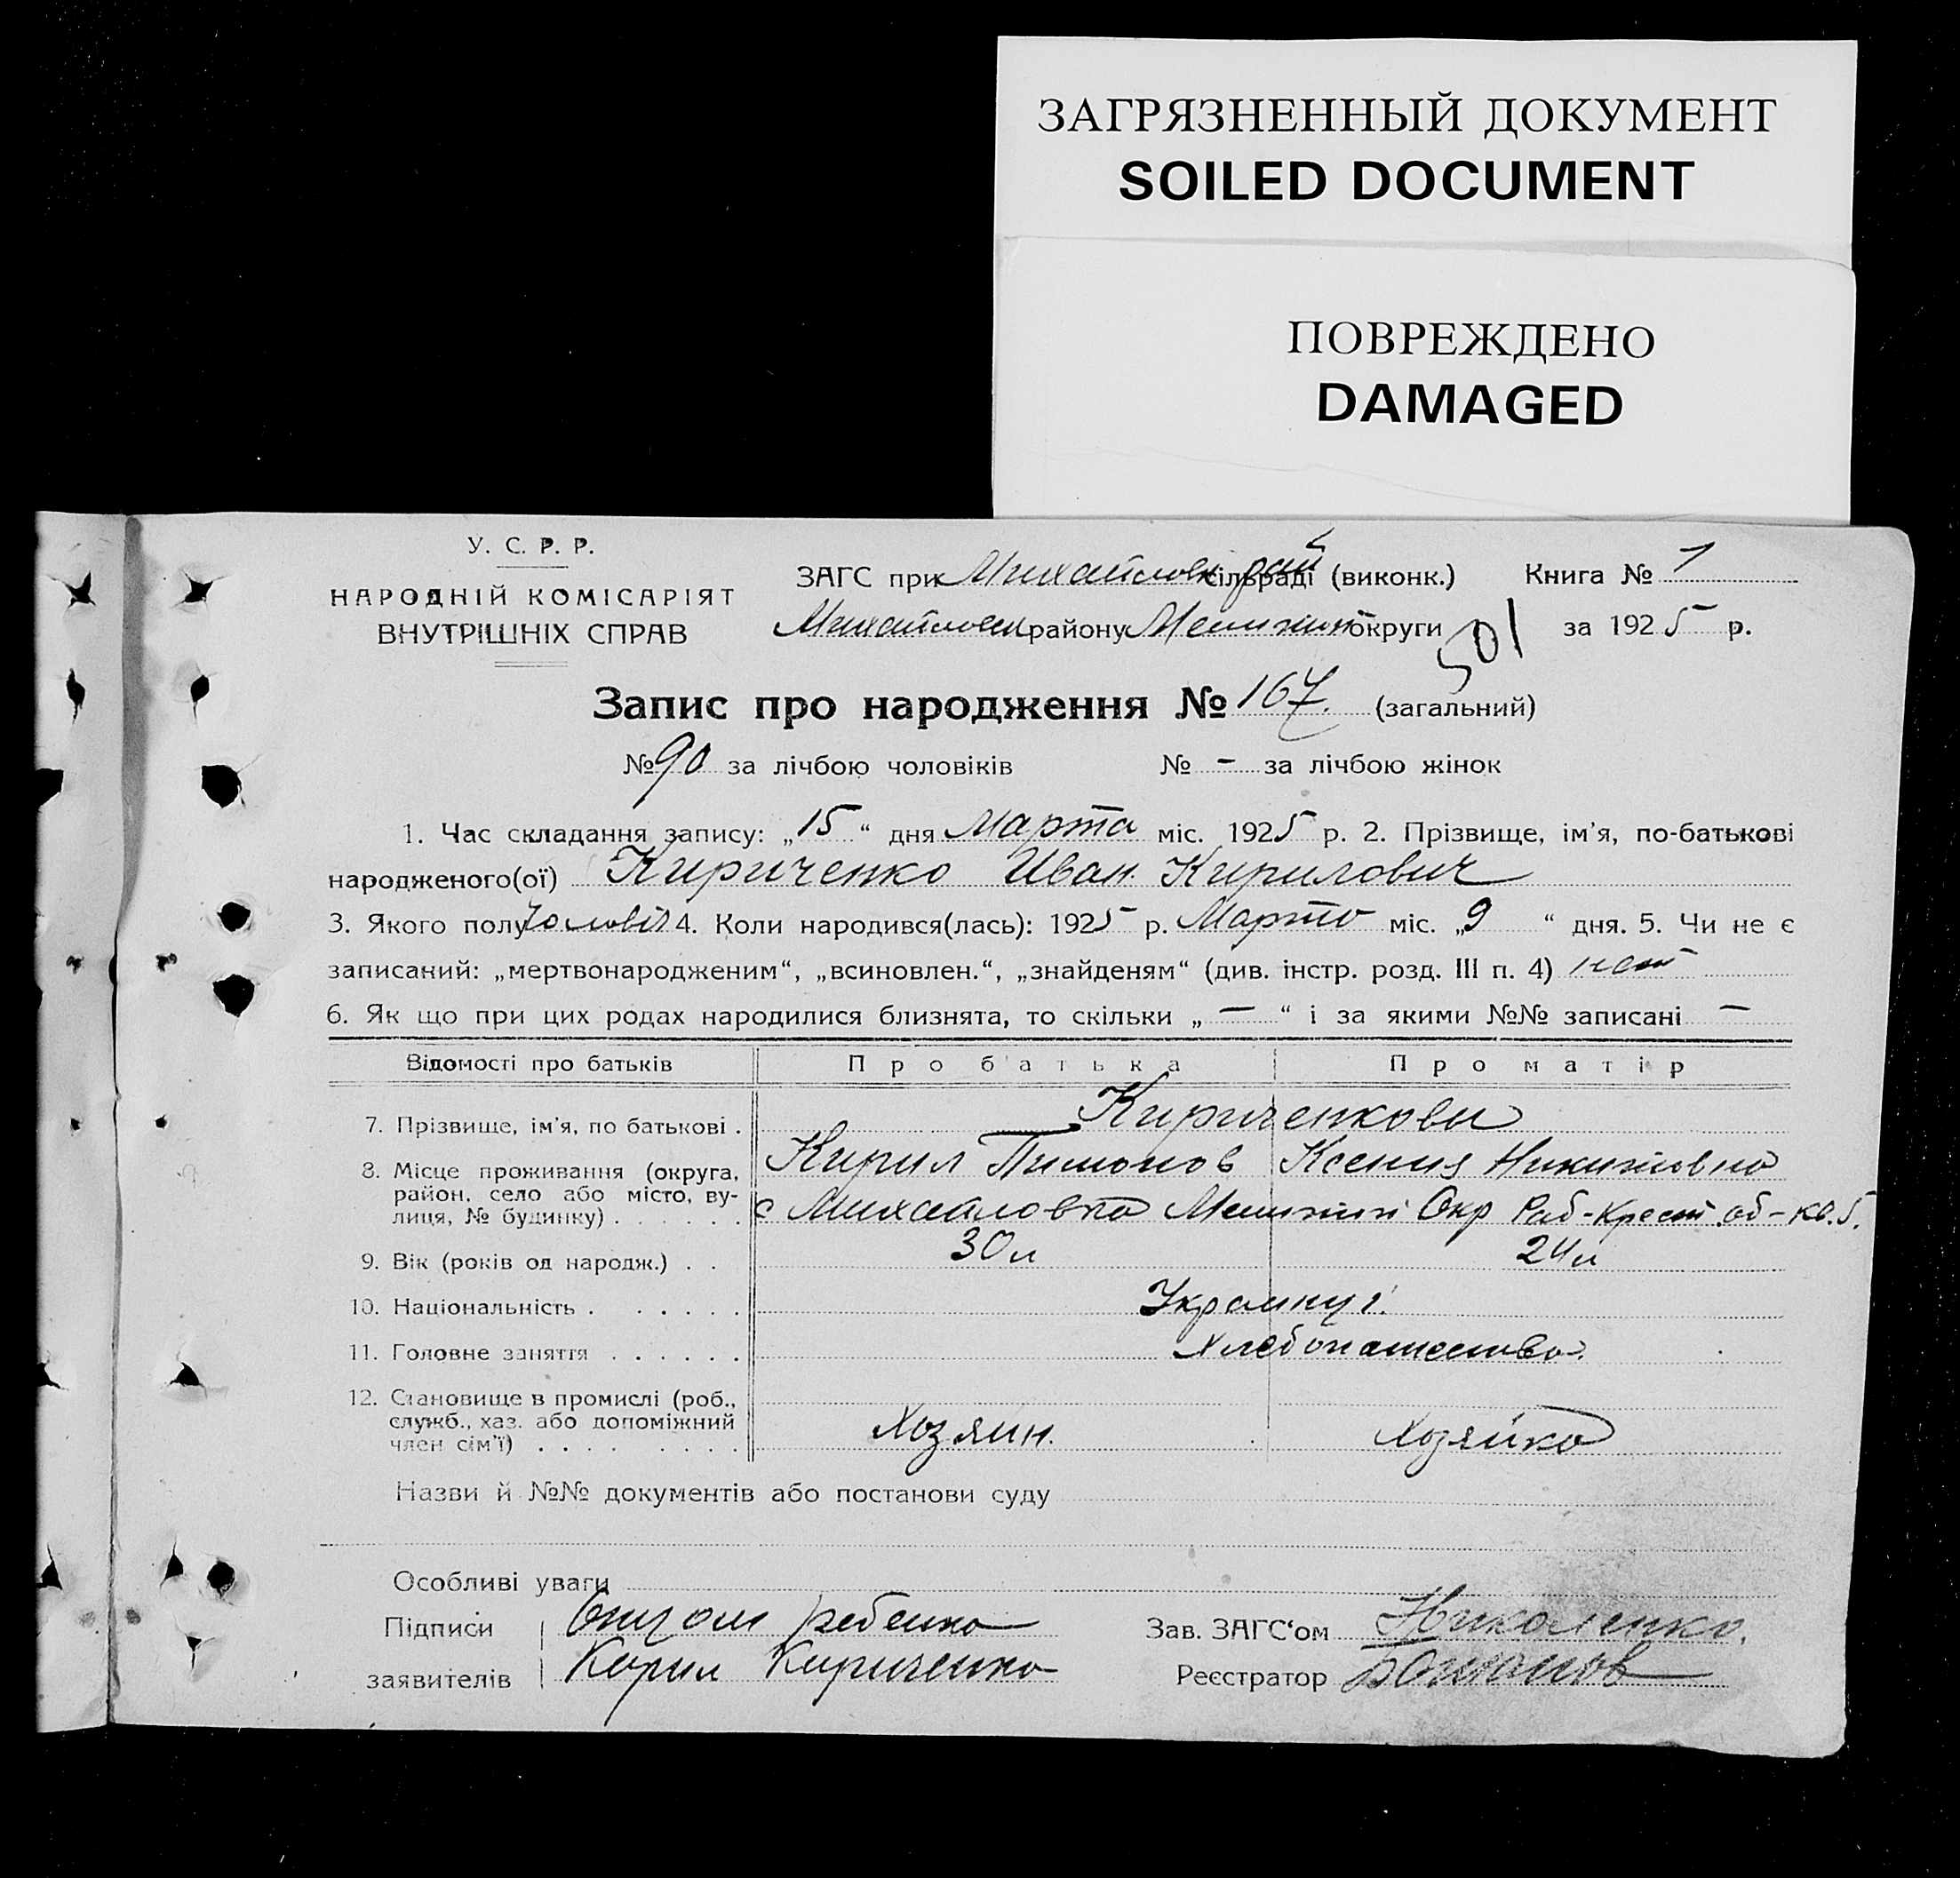 ЗАГРЯЗНЕННЫЙ ДОКУМЕНТ
SOILED DOCUMENT
ПОВРЕЖДЕНО
DAMAGED
У. С. Р. Р.
НАРОДНІЙ КОМІСАРІЯТ
ВНУТРІШНІХ СПРАВ
ЗАГС при Михайловк рай сільраді (виконк.) Книга № 1
Михайловск району Мелитоп округи 501 за 1925 р.
Запис про народження № 167. (загальний)
№ 90 за лічбою чоловіків № – за лічбою жінок
1. Час складання запису: „15“ дня Марта міс. 1925 р. 2. Прізвище, ім'я, по-батькові
народженого(ої) Кириченко Иван Кирилович
3. Якого полу Чоловіч 4. Коли народився(лась): 1925 р. Марта міс. „9“ дня. 5. Чи не є
записаний: „мертвонародженим“, „всиновлен.“, „знайденям“ (див. інстр. розд. III п. 4) нет
6. Як що при цих родах народилися близнята, то скільки „ — “ і за якими №№ записані —
Відомості про батьків Про батька Про матір
7. Прізвище, ім'я, по батькові . Кириченковы
Кирил Тимонов Ксения Никитовна
8. Місце проживання (округа, район, село або місто, вулиця, № будинку) . . . . . . с Михайловка Окр Раб-Крест об-кв.
9. Вік (років од народж.) . . 30 л 24 л
10. Національність . . . . . . Украинці
11. Головне заняття . . . . . . Хлебопашество.
12. Становище в промислі (роб., служб., хаз. або допоміжний член сім'ї) . . . . . . . . Хозяин. Хозяйка
Назви й №№ документів або постанови суду
Особливі уваги
Підписи Отцом ребенка Зав. ЗАГС'ом Николенко.
заявителів Кирил Кириченко Реєстратор